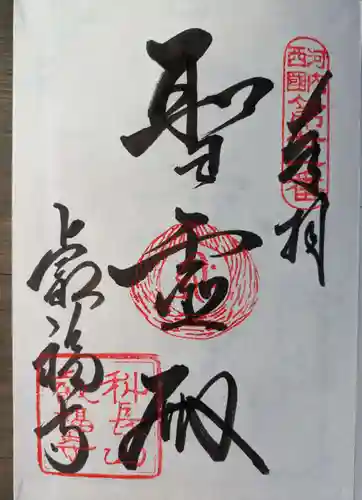 奉拝
河内西國第八番
聖霊殿
上之太子
叡福寺
科長山
叡福寺